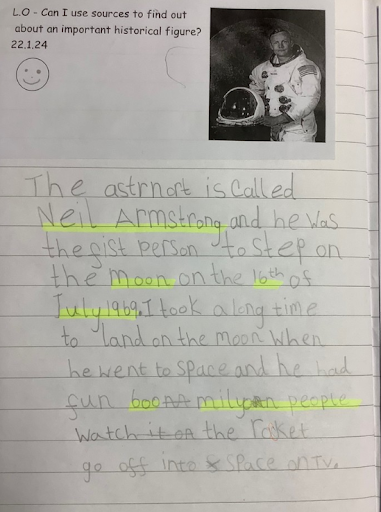 L.O - Can I use sources to find out
about an important historical figure?
22.1.24
The astrnart is called
Neil Armstrong and he was
the fist person to step on
the moon on the 16th of
July 1969. I took a long time
to land on the moon when
he went to space and he had
fun people
watch it on the roket
go off into space on TV.